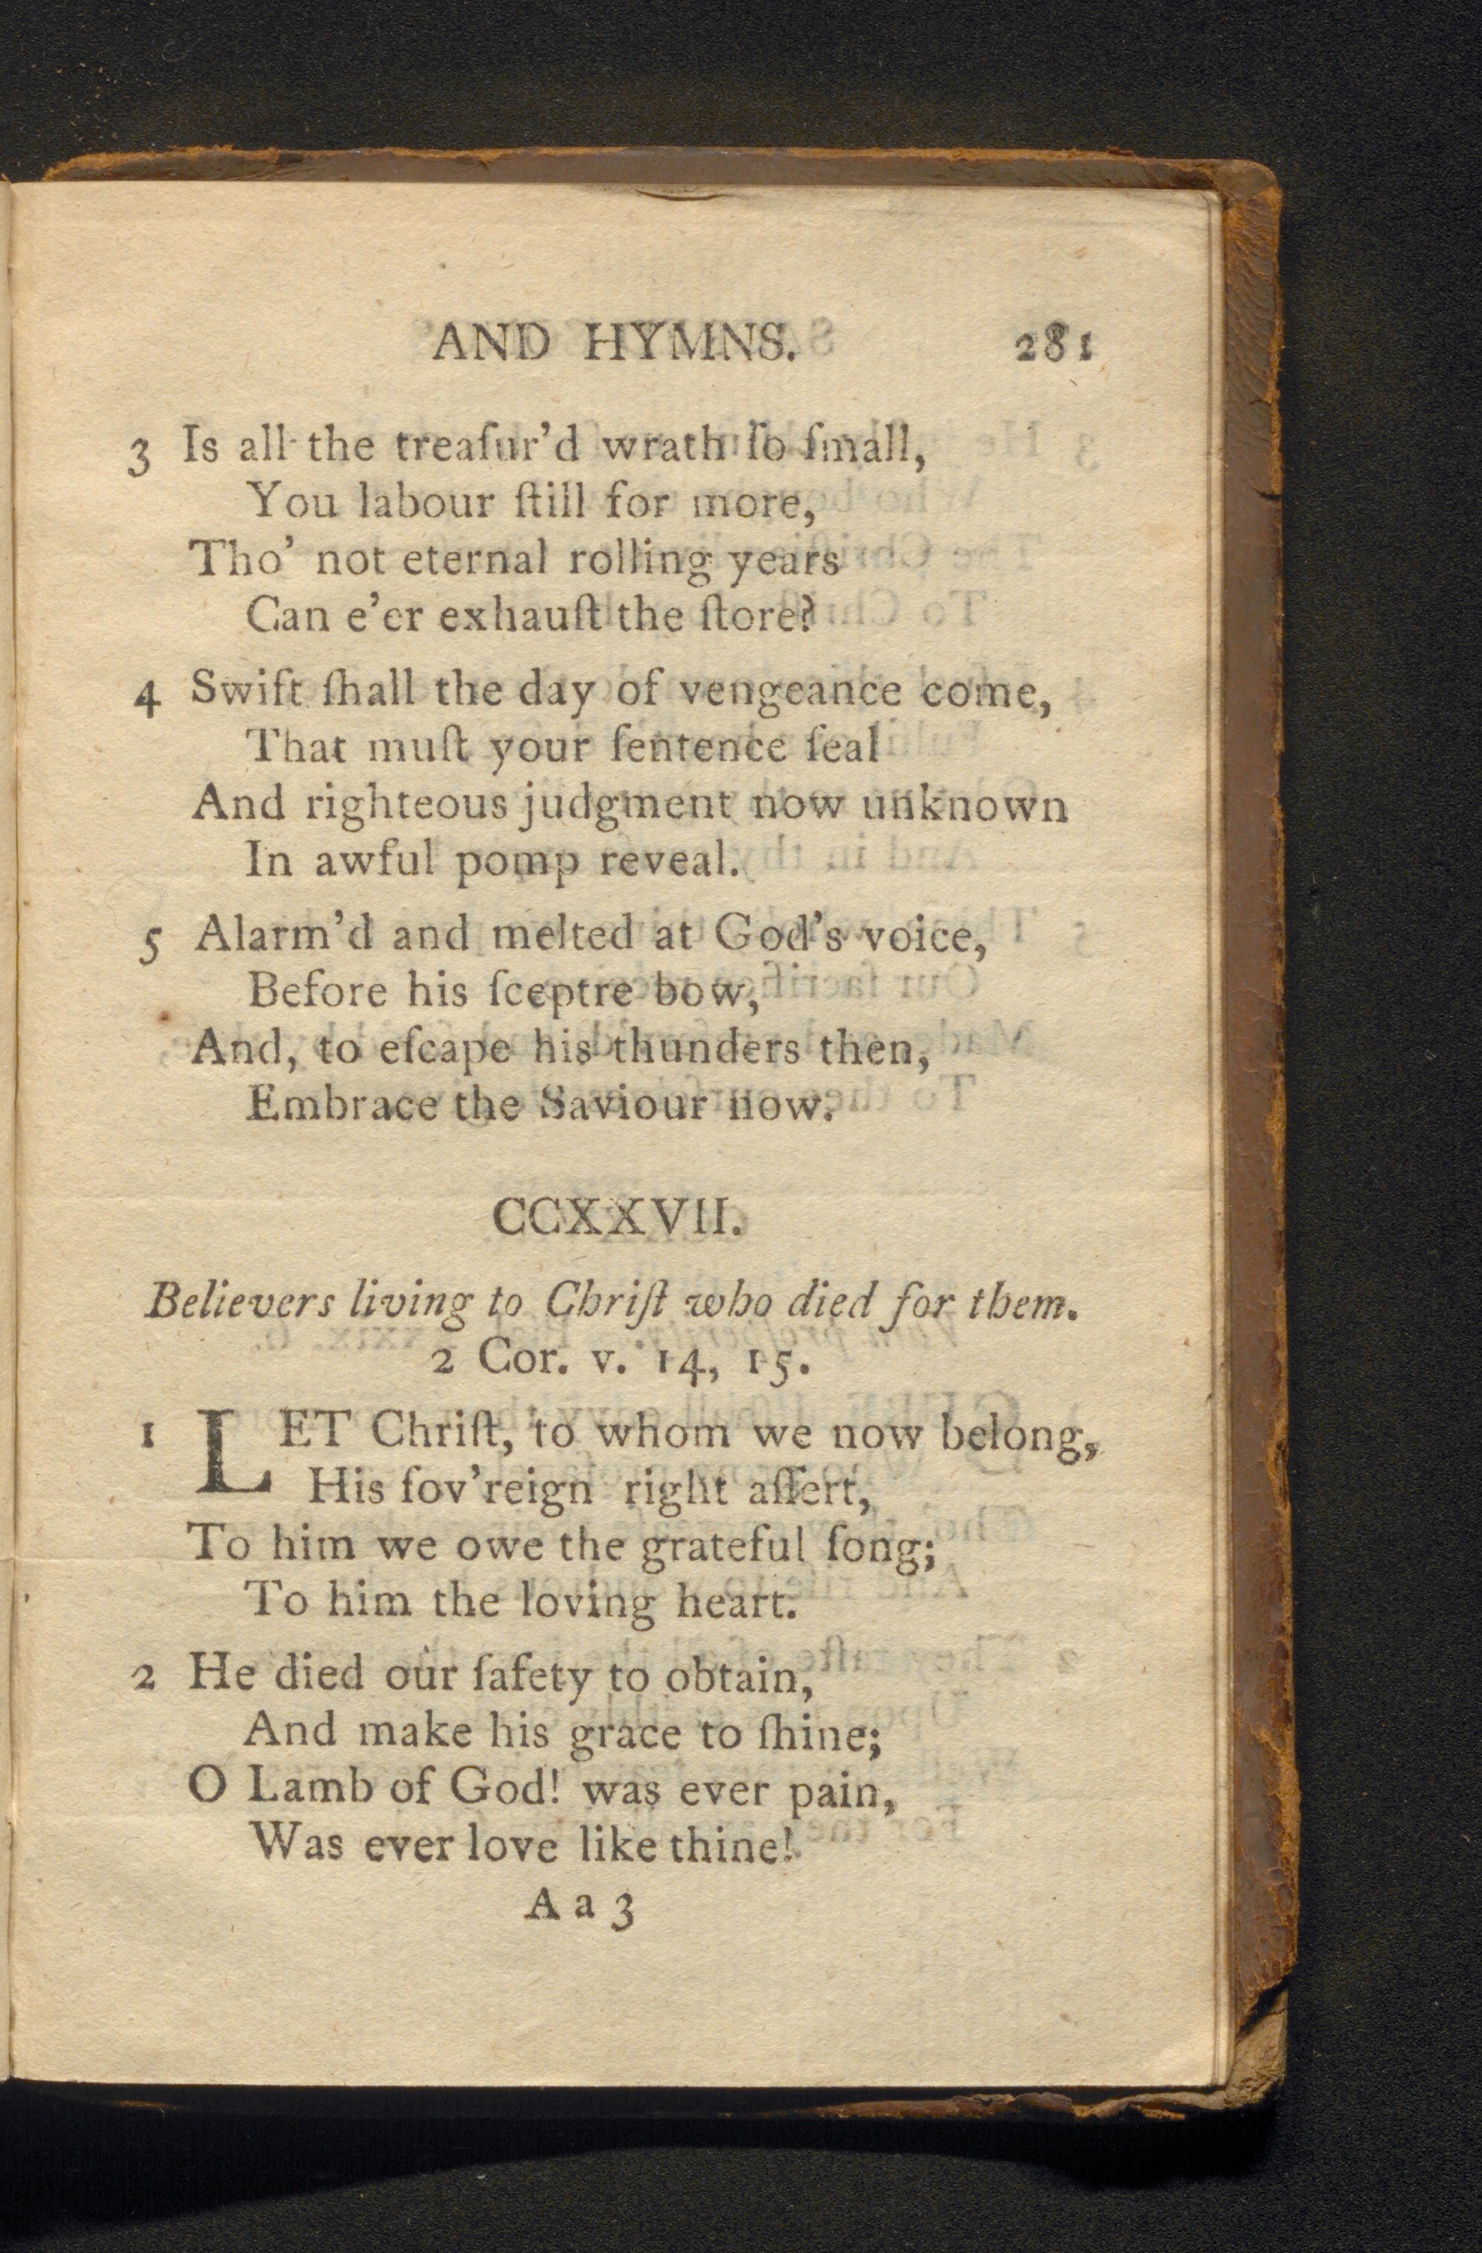 AND HYMNS. 281
3 Is all the treaſur’d wrath ſo ſmall,
You labour ſtill for more,
Tho’ not eternal rolling years
Can e’er exhauſt the ſtore?
4 Swift ſhall the day of vengeance come,
That muſt your ſentence ſeal
And righteous judgment now unknown
In awful pomp reveal.
5 Alarm’d and melted at God’s voice,
Before his ſceptre bow,
And, to eſcape his thunders then,
Embrace the Saviour now.
CCXXVII.
Believers living to Chriſt who died for them.
2 Cor. v. 14, 15.
1 LET Chriſt, to whom we now belong,
His ſov’reign right aſſert,
To him we owe the grateful ſong;
To him the loving heart.
2 He died our ſafety to obtain,
And make his grace to ſhine;
O Lamb of God! was ever pain,
Was ever love like thine!
A a 3